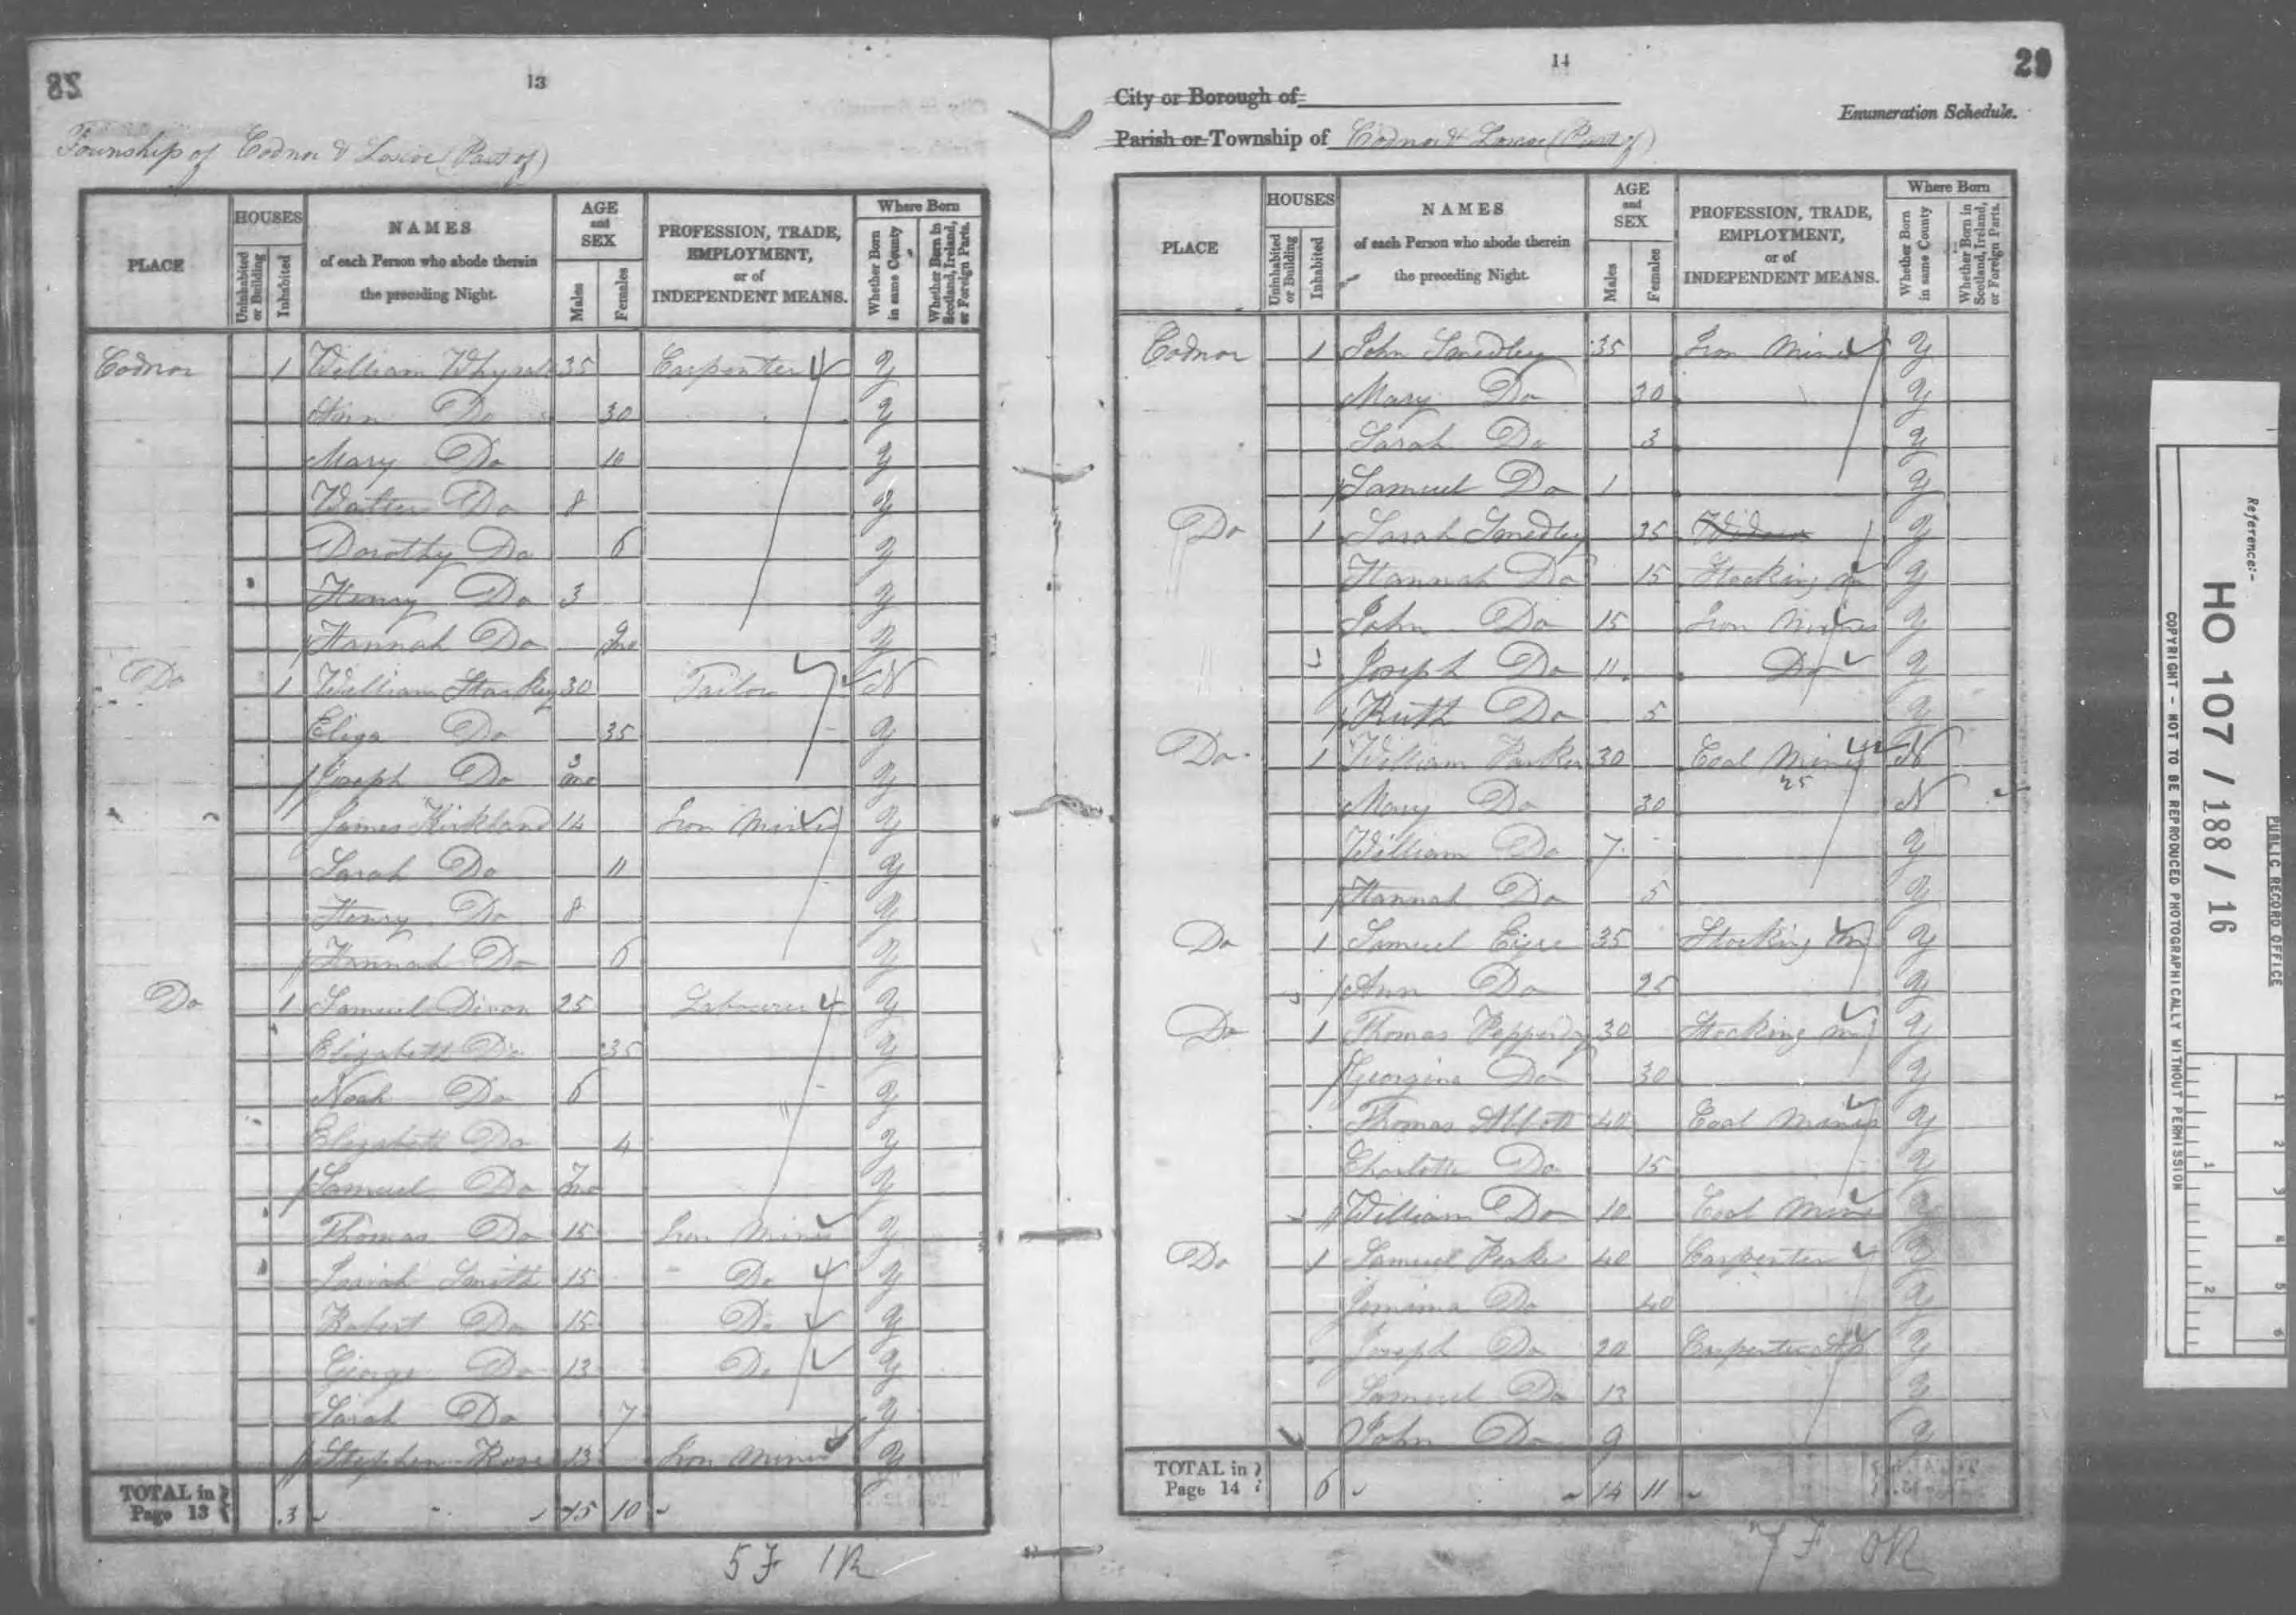 82
13
Township of Codnor & Loscoe (Part of)
PLACE
HOUSES
Uninhabited or Building
Inhabited
NAMES of each Person who abode therein the preceding Night.
AGE and SEX
Males
Females
PROFESSION, TRADE, EMPLOYMENT, or of INDEPENDENT MEANS.
Where Born
Whether Born in same County
Whether Born in Scotland, Ireland, or Foreign Parts.
Codnor 1 William 35 Carpenter Y
Ann Do 30 Y
Mary Do 10 Y
Walter Do 8 Y
Dorothy Do 6 Y
Henry Do 3 Y
Hannah Do 9 mo Y
Do 1 William Starkey 30 Tailor N
Eliza Do 35 Y
Joseph Do 3 mo Y
James Kirkland 14 Iron Miner Y
Sarah Do 11 Y
Henry Do 8 Y
Hannah Do 6 Y
Do 1 Samuel Dixon 25 Labourer Y
Elizabeth Do 35 Y
Noah Do 6 Y
Elizabeth Do 4 Y
Samuel Do mo Y
Thomas Do 15 Iron Miner Y
Smith 15 Do Y
Robert Do 15 Do Y
George Do 13 Do Y
Sarah Do 7 Y
Stephen Rose 13 Iron Miner Y
TOTAL in Page 13 3 15 10
5 F 1R
14
29
City or Borough of
Enumeration Schedule.
Parish or Township of Codnor & Loscoe (Part of)
PLACE
HOUSES
Uninhabited or Building
Inhabited
NAMES of each Person who abode therein the preceding Night.
AGE and SEX
Males
Females
PROFESSION, TRADE, EMPLOYMENT, or of INDEPENDENT MEANS.
Where Born
Whether Born in same County
Whether Born in Scotland, Ireland, or Foreign Parts.
Codnor 1 John Smedley 35 Iron Miner Y
Mary Do 30 Y
Sarah Do 3 Y
Samuel Do 1 Y
Do 1 Sarah Smedley 35 Widow Y
Hannah Do 15 Stocking m Y
John Do 15 Iron Miner Y
Joseph Do 11 Do Y
Ruth Do 5 Y
Do 1 William Parker 30 Coal Miner N
25
Mary Do 30 N
William Do 7 Y
Hannah Do 5 Y
Do 1 Samuel Eyre 35 Stocking m Y
Ann Do 25 Y
Do 1 Thomas Pepperday 30 Stocking m Y
Georgina Do 30 Y
Thomas Abbott 40 Coal Miner Y
Charlotte Do 15 Y
William Do 10 Coal Miner Y
Do 1 Samuel Peake 40 Carpenter Y
Jemima Do 40 Y
Joseph Do 20 Carpenter Ap Y
Samuel Do 13 Y
John Do 9 Y
TOTAL in Page 14 6 14 11
7 F OR
Reference:-
HO 107 / 188 / 16
PUBLIC RECORD OFFICE
COPYRIGHT - NOT TO BE REPRODUCED PHOTOGRAPHICALLY WITHOUT PERMISSION
1
2
1
2
3
4
5
6